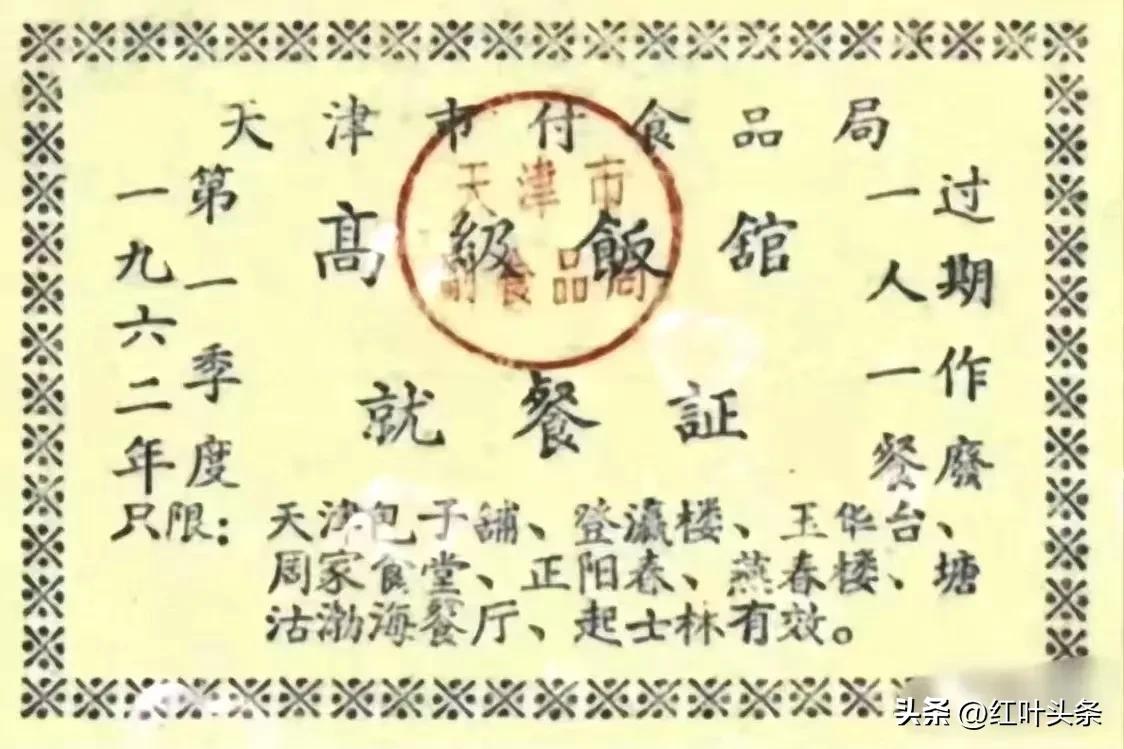 天津市付食品局
天津市
副食品局
高級飯舘
就餐証
一九六二年
第一季度
过期作廢
一人一餐
只限：天津包子舖、登瀛楼、玉华台、
周家食堂、正阳春、燕春楼、塘
沽渤海餐厅、起士林有效。
头条 @红叶头条